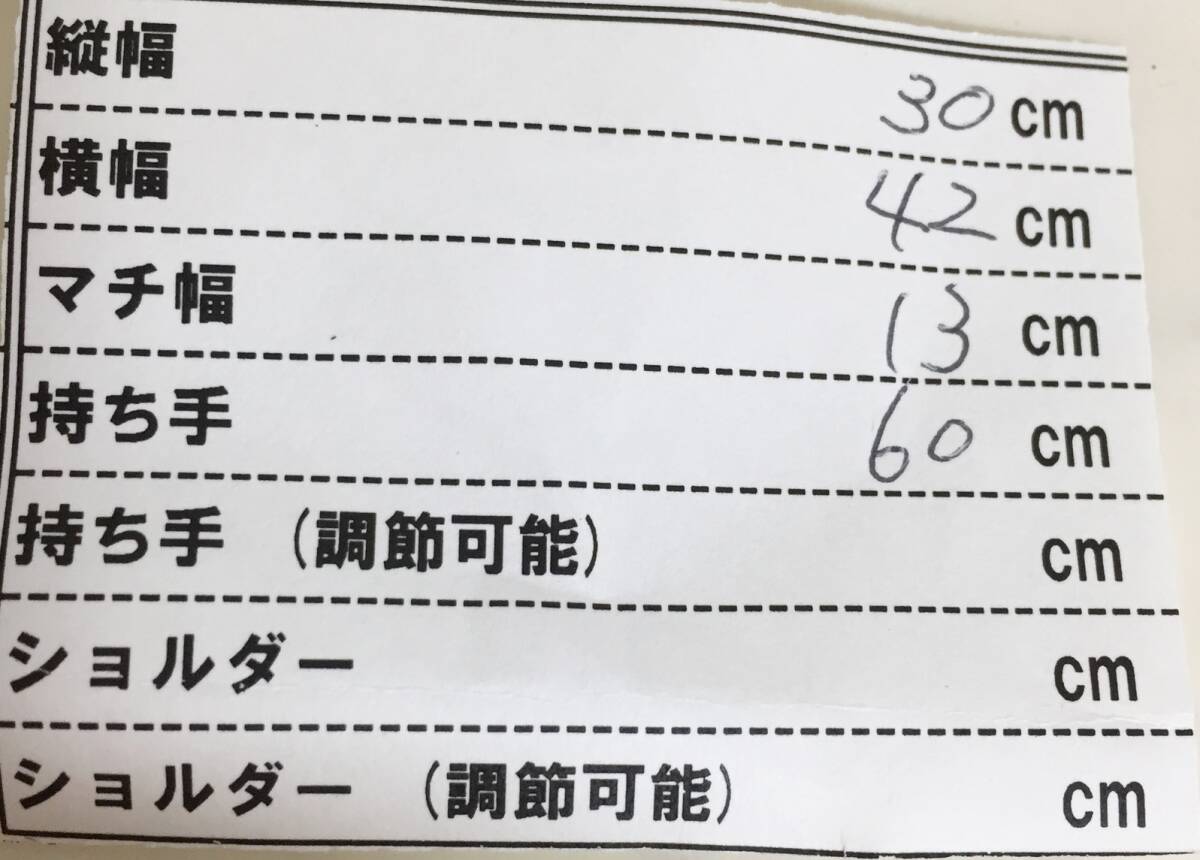 縦幅 30 cm
横幅 42 cm
マチ幅 13 cm
持ち手 60 cm
持ち手 (調節可能) cm
ショルダー cm
ショルダー (調節可能) cm